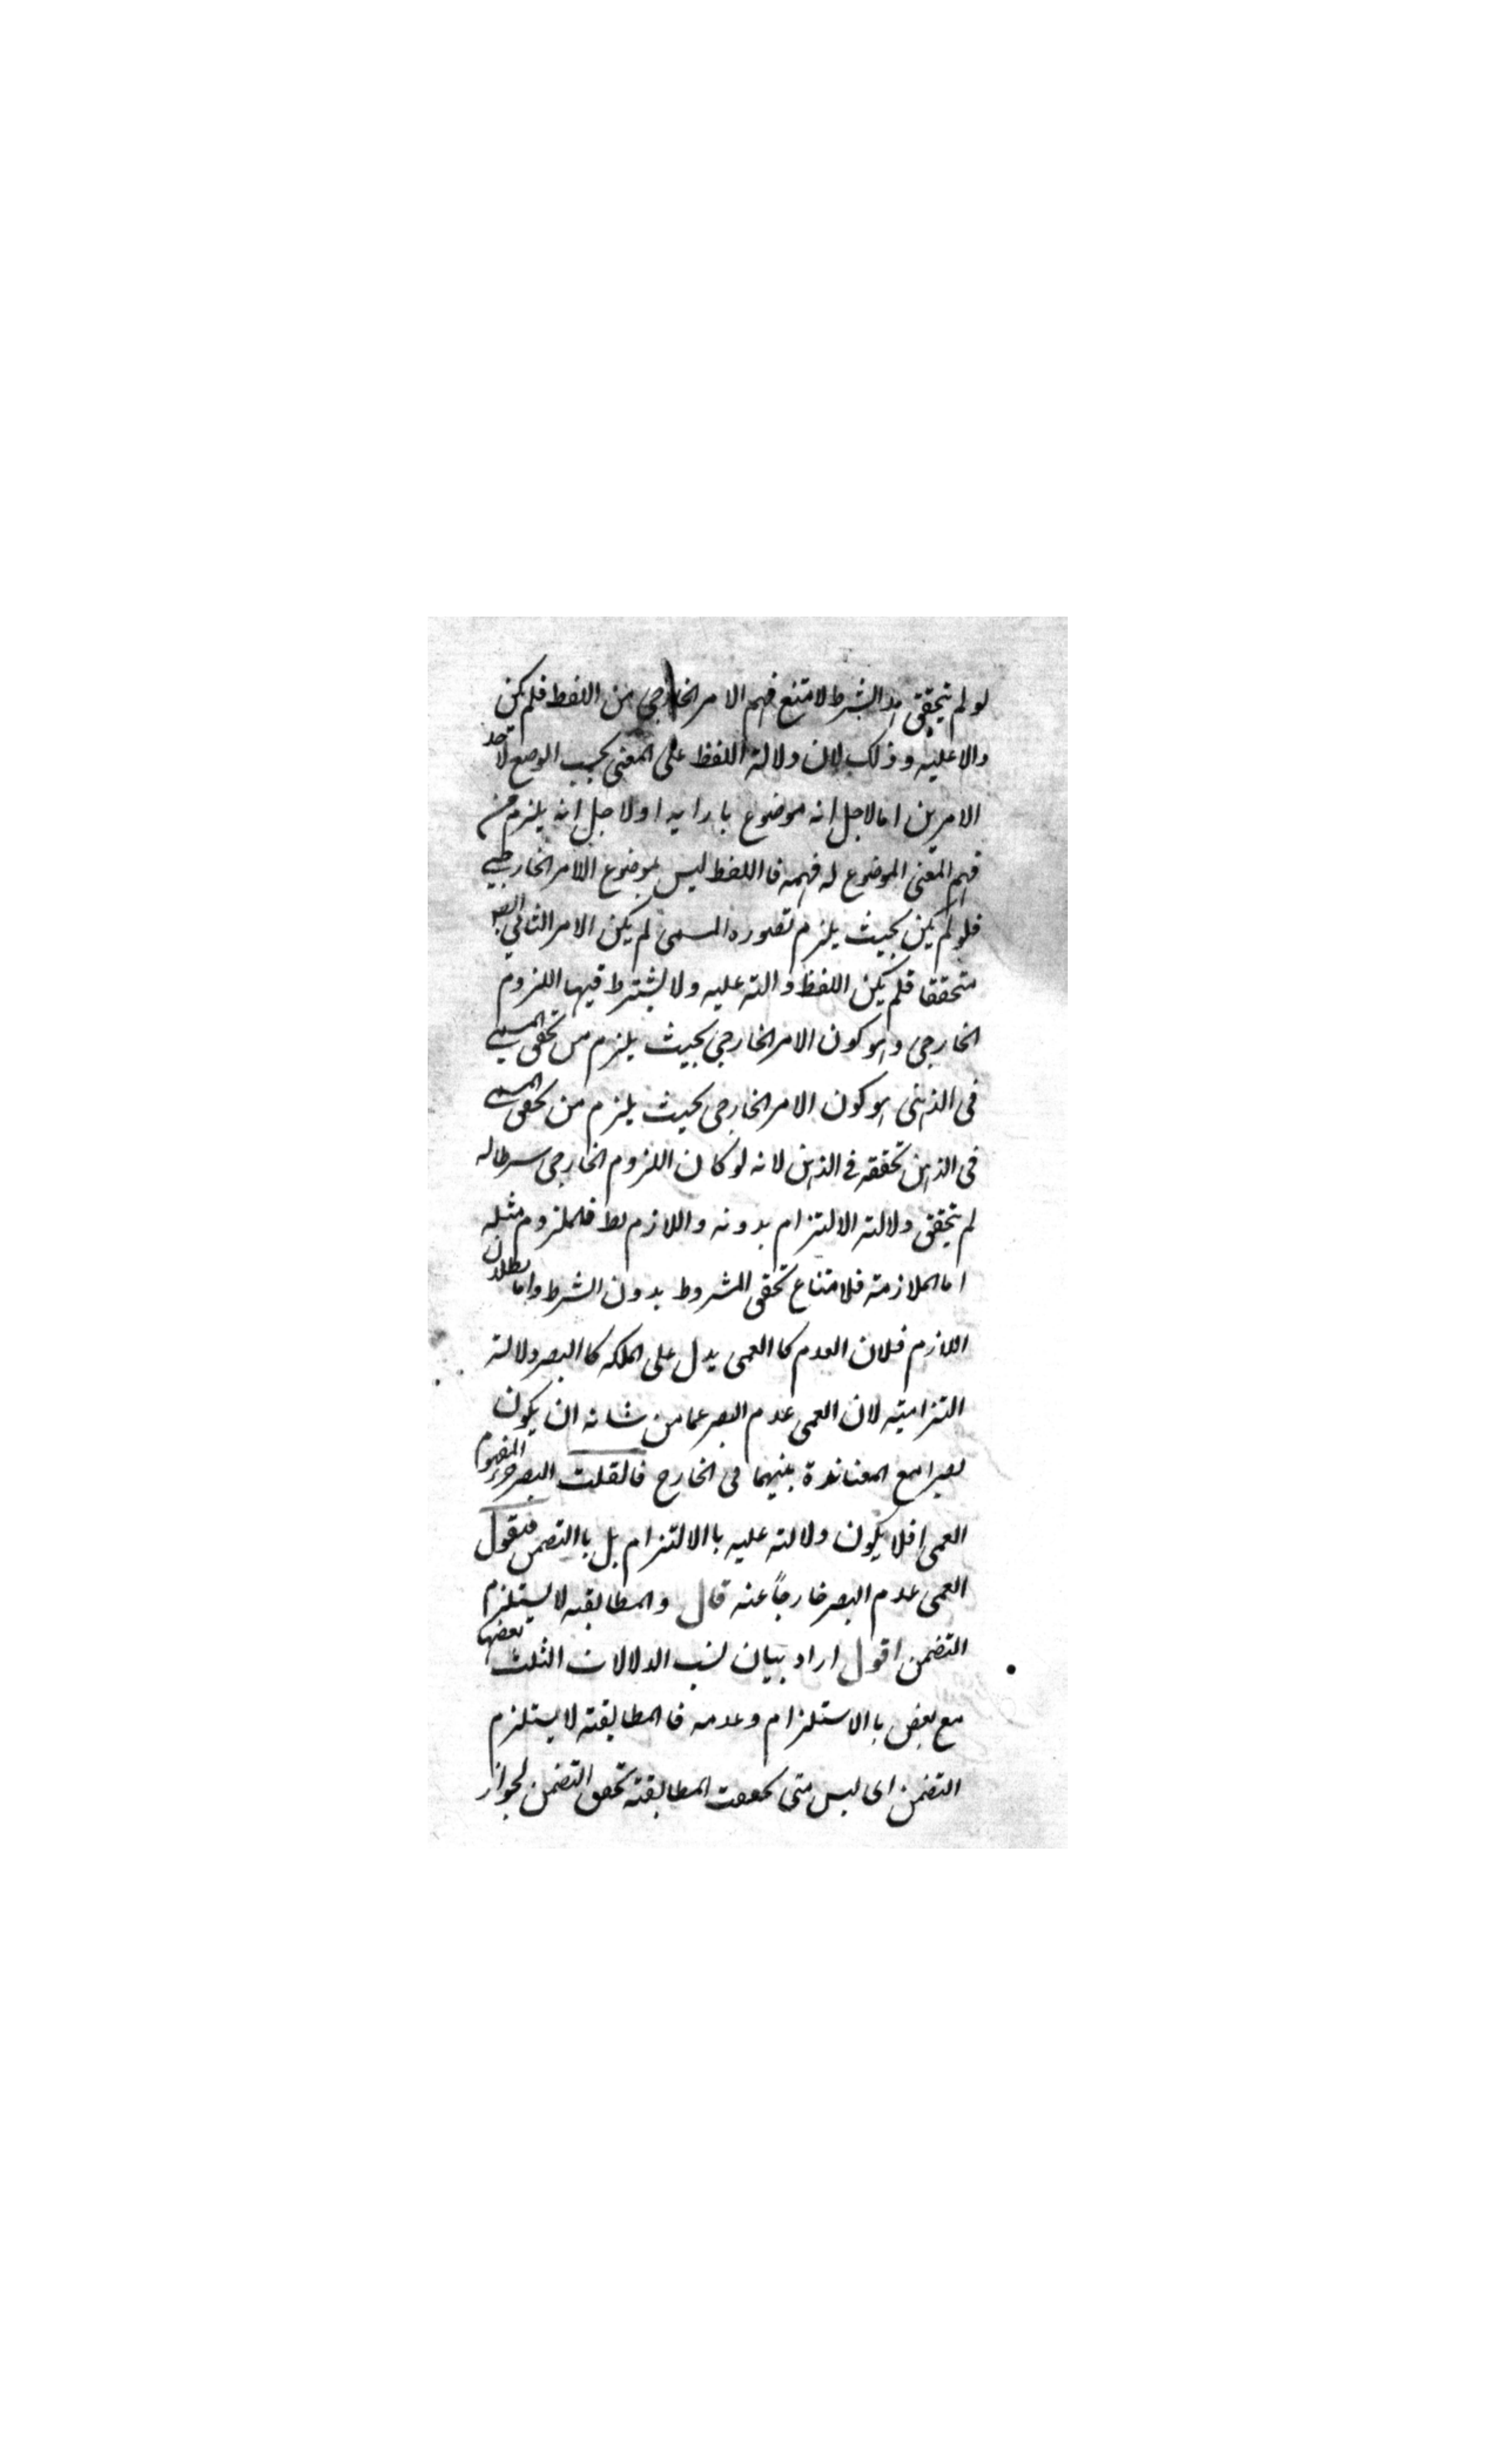 لو لم يتحقق هذا الشرط لامتنع فهم الامر الخارجي من اللفظ فلم يكن
دالا عليه وذلك لان دلالة اللفظ على المعنى بحسب الوضع لاحد
الامرين اما لاجل انه موضوع بازايه او لاجل انه يلزم من
فهم المعنى الموضوع له فهمه فاللفظ ليس بموضوع اللامر الخارجي
فلو لم يكن بحيث يلزم تصوره المسمى لم يكن الامر الثاني ايضا
متحققا فلم يكن اللفظ دالته عليه ولا يشترط فيها اللزوم
الخارجي وهو كون الامر الخارجي بحيث يلزم من تحقق المسمى
في الذهني هو كون الامر الخارجي بحيث يلزم من تحقق المسمى
في الذهن تحققه في الذهن لانه لو كان اللزوم الخارجي شرطا له
لم يتحقق دلالته الالتزام بدونه واللازم بط فلملزوم مثله
اما الملازمته فلامتناع تحقق المشروط بدون الشرط واما بطلان
اللازم فلان العدم كا العمى يدل على الملكه كا البصر دلالته
التزاميته لان العمى عدم البصر عما من شانه ان يكون
بصيرا مع المعناندة بينهما في الخارج فالقلت البصر جزء المفهوم
العمى افلا يكون دلالته عليه باالالتزام بل باالتضمن فنقول
العمى عدم البصر خارجاً عنه قال والمطابقه لا يستلزم
التضمن اقول اراد بيان نسب الدلالات الثلث بعضها
مع بعض باالاستلزام وعدمه فالمطابقته لا يستلزم
التضمن اى ليس متى تحققت المطابقته تحقق التضمن لجواز